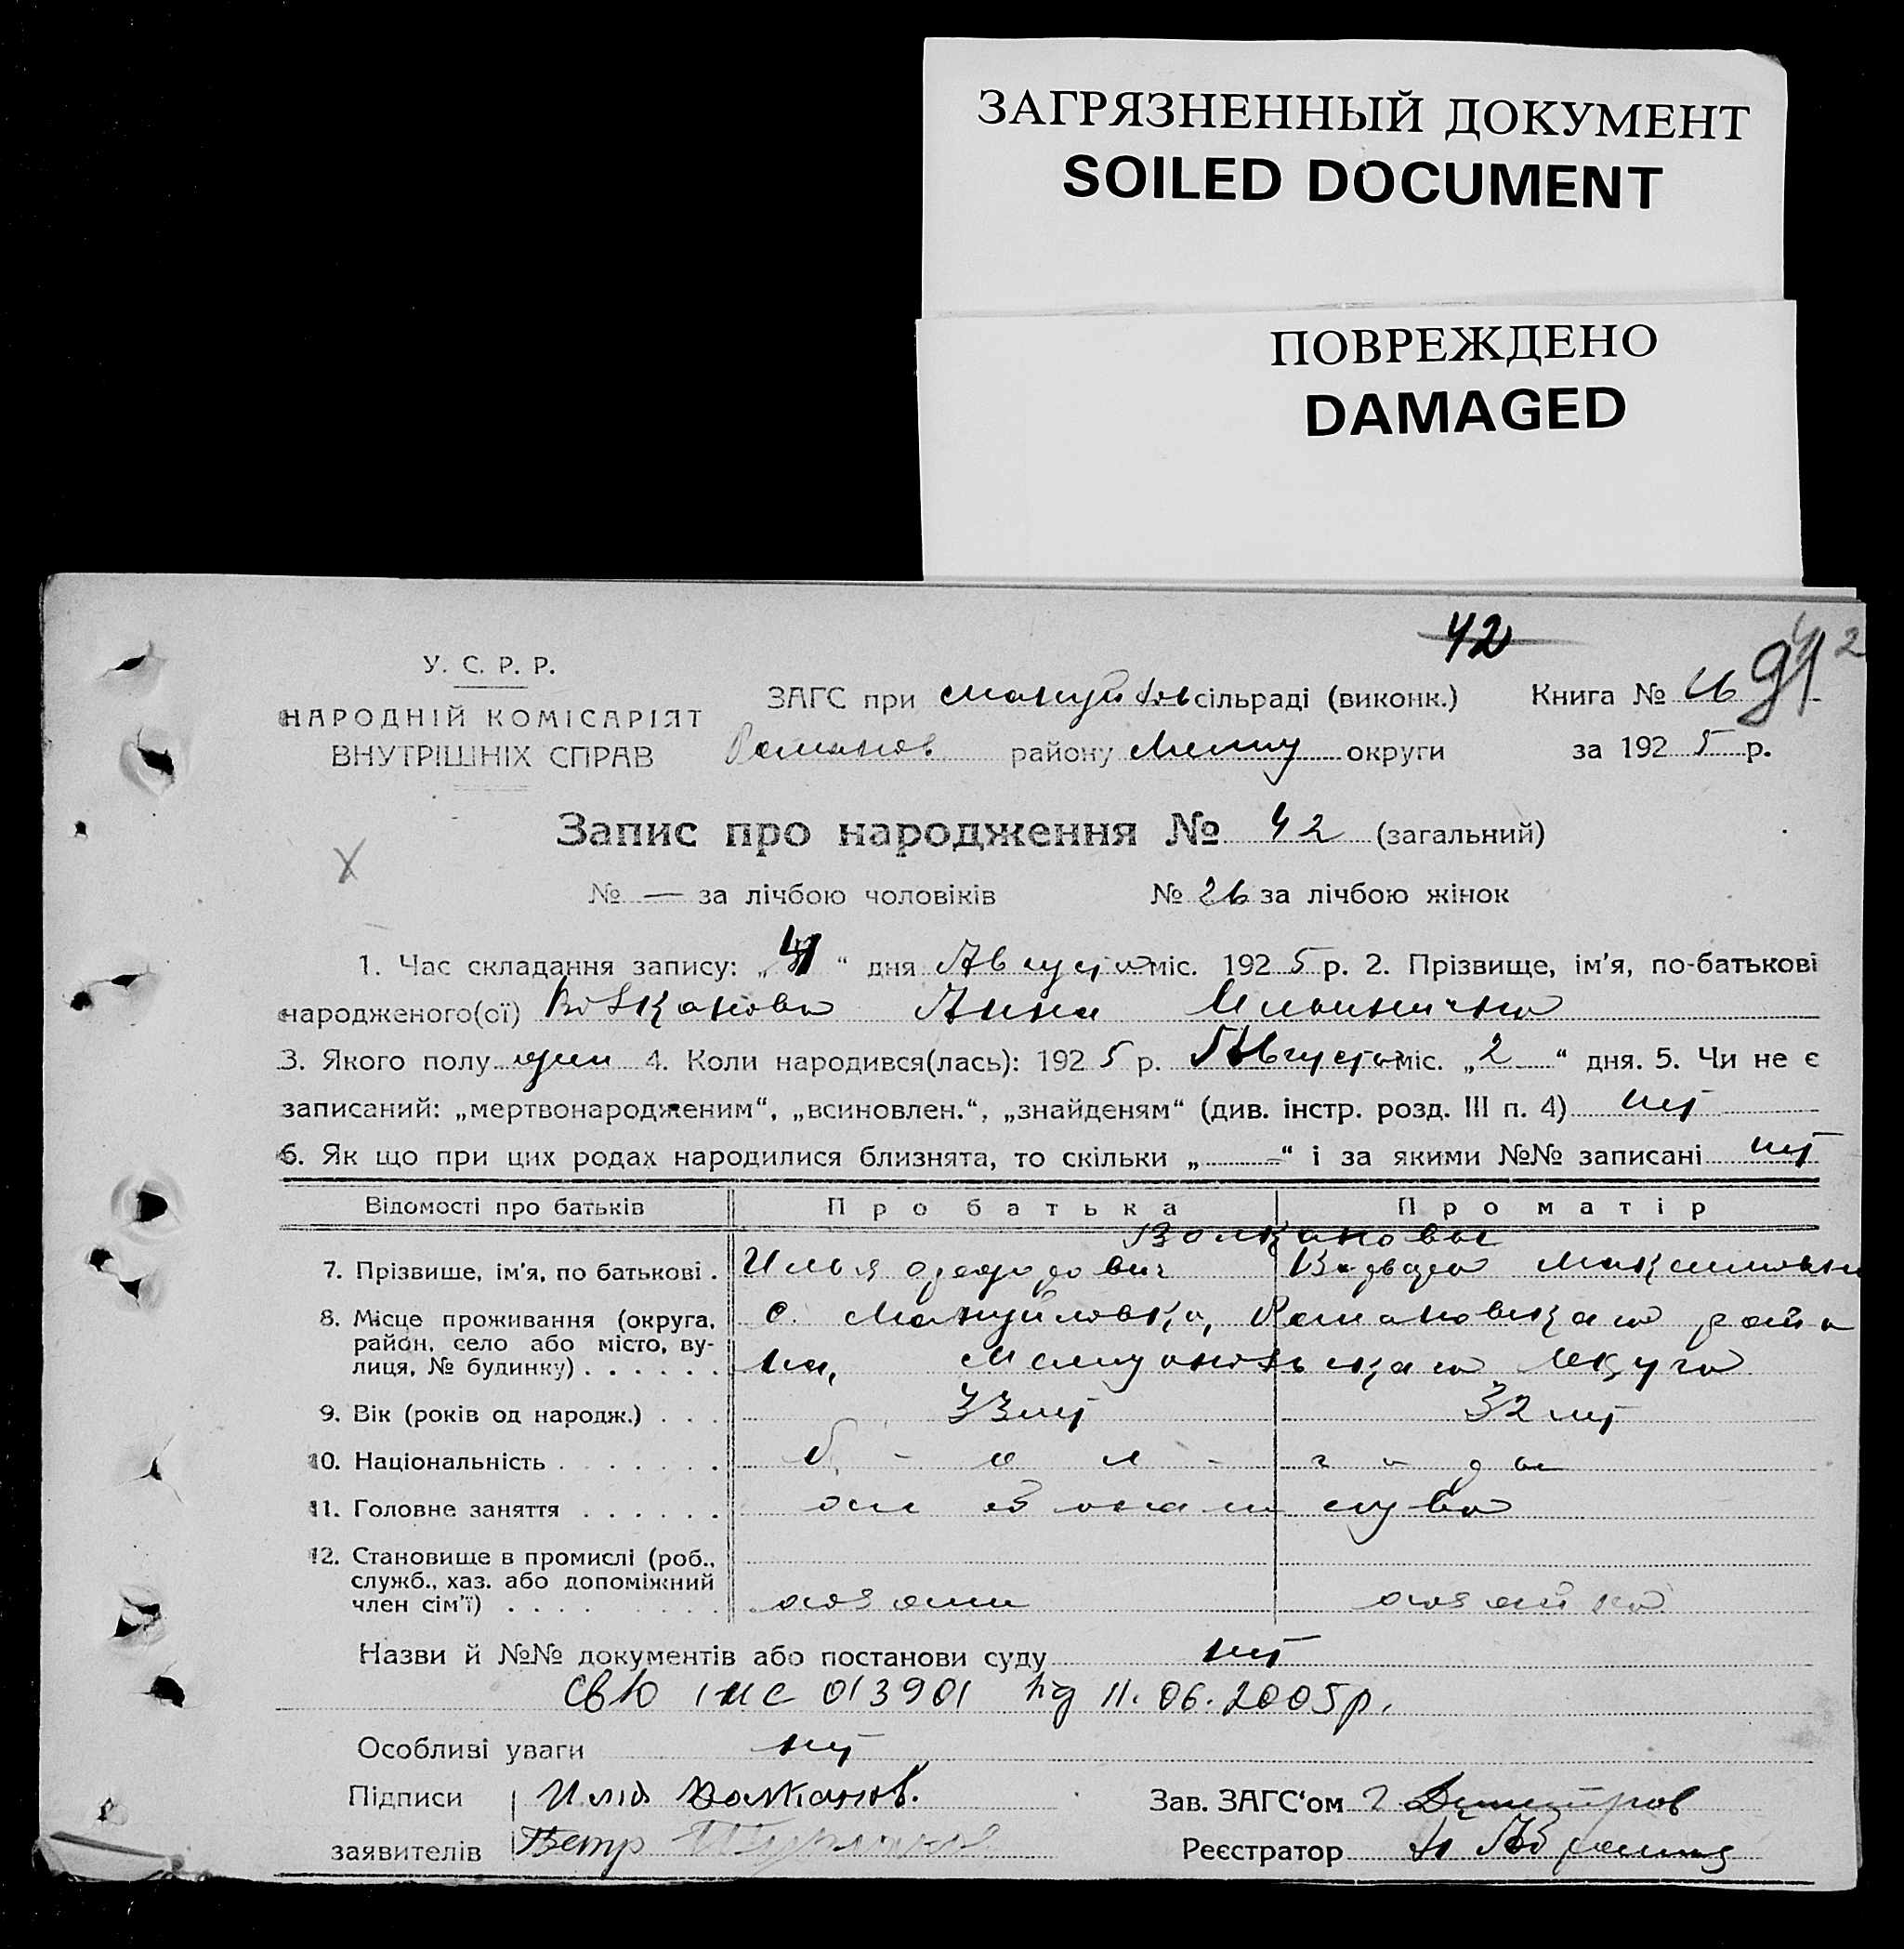 ЗАГРЯЗНЕННЫЙ ДОКУМЕНТ
SOILED DOCUMENT
ПОВРЕЖДЕНО
DAMAGED
42
У. С. Р. Р.
НАРОДНІЙ КОМІСАРІЯТ
ВНУТРІШНІХ СПРАВ
ЗАГС при сільраді (виконк.) Книга №
Романов району округи за 192 5 р.
Запис про народження № 42 (загальний)
№ — за лічбою чоловіків № 26 за лічбою жінок
1. Час складання запису: „ “ дня Августа міс. 192 5 р. 2. Прізвище, ім'я, по-батькові
народженого(ої) Волканова Анна Ильинична
3. Якого полу 4. Коли народився(лась): 192 5 р. Августа міс. „ 2 “ дня. 5. Чи не є
записаний: „мертвонародженим“, „всиновлен.“, „знайденям“ (див. інстр. розд. III п. 4) нет
6. Як що при цих родах народилися близнята, то скільки „ — “ і за якими №№ записані нет
Відомості про батьків Про батька Про матір
Волкановы
7. Прізвище, ім'я, по батькові . Илья Федорович Максимовна
8. Місце проживання (округа, с. Мануйловка, Романовского райо
район, село або місто, ву-
лиця, № будинку) . . . . . . на, Мелитопольского округа
9. Вік (років од народж.) . . . 33 лет 32 лет
10. Національність . . . . . . . болгары
11. Головне заняття . . . . . .
12. Становище в промислі (роб.,
служб., хаз. або допоміжний
член сім'ї) . . . . . . . . хозяин хозяйка
Назви й №№ документів або постанови суду нет
013901 від 11.06.2005р.
Особливі уваги нет
Підписи Илия Волканов. Зав. ЗАГС‘ом Димитров
заявителів Петр Реєстратор